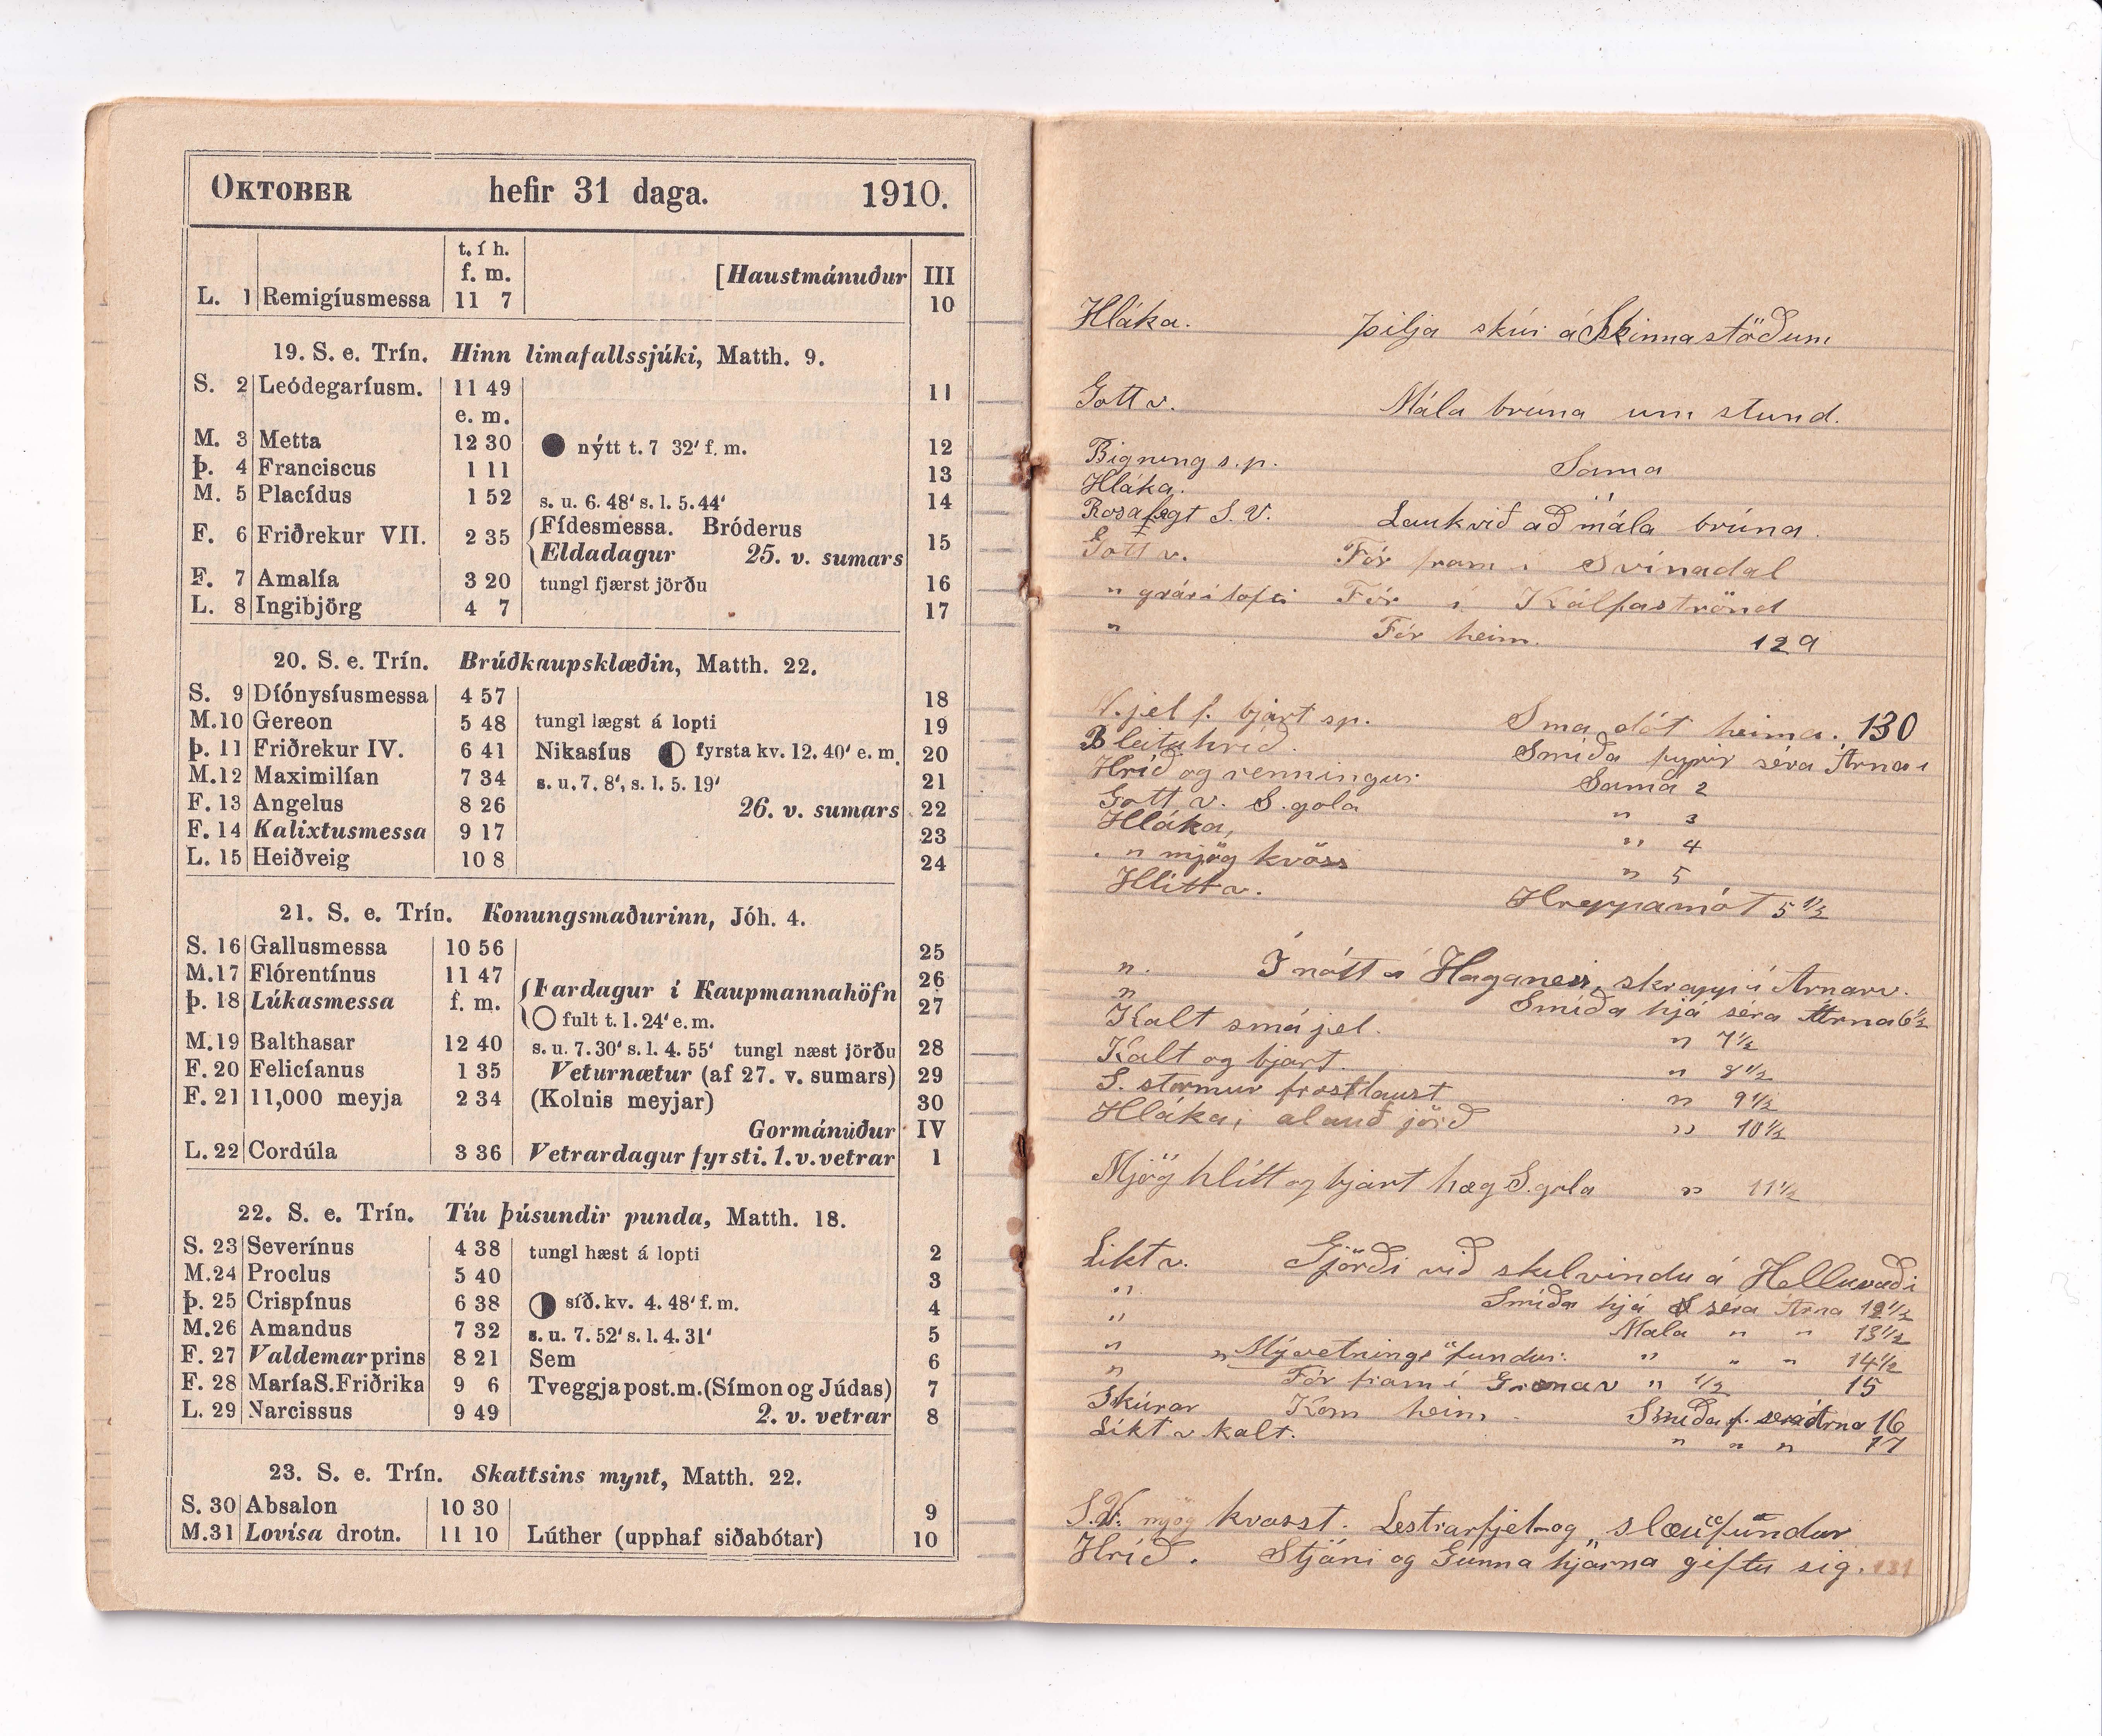 OKTOBER hefir 31 daga. 1910.
t. í h.
f. m. [Haustmánuður III
L. 1 Remigíusmessa 11 7 10
19. S. e. Trín. Hinn limafallssjúki, Matth. 9.
S. 2 Leódegaríusm. 11 49 11
e. m.
M. 3 Metta 12 30 nýtt t. 7 32' f. m. 12
Þ. 4 Franciscus 1 11 13
M. 5 Placídus 1 52 s. u. 6. 48' s. l. 5. 44' 14
F. 6 Friðrekur VII. 2 35 Fídesmessa. Bróderus 15
Eldadagur 25. v. sumars
F. 7 Amalía 3 20 tungl fjærst jörðu 16
L. 8 Ingibjörg 4 7 17
20. S. e. Trín. Brúðkaupsklæðin, Matth. 22.
S. 9 Díónysíusmessa 4 57 18
M. 10 Gereon 5 48 tungl lægst á lopti 19
Þ. 11 Friðrekur IV. 6 41 Nikasíus fyrsta kv. 12. 40' e. m. 20
M. 12 Maximilían 7 34 s. u. 7. 8', s. l. 5. 19' 21
F. 13 Angelus 8 26 26. v. sumars 22
F. 14 Kalixtusmessa 9 17 23
L. 15 Heiðveig 10 8 24
21. S. e. Trín. Konungsmaðurinn, Jóh. 4.
S. 16 Gallusmessa 10 56 25
M. 17 Flórentínus 11 47 26
Fardagur í Kaupmannahöfn
Þ. 18 Lúkasmessa f. m. 27
fult t. 1. 24' e. m.
M. 19 Balthasar 12 40 s. u. 7. 30' s. l. 4. 55' tungl næst jörðu 28
F. 20 Felicíanus 1 35 Veturnætur (af 27. v. sumars) 29
F. 21 11,000 meyja 2 34 (Kolnis meyjar) 30
Gormánuður IV
L. 22 Cordúla 3 36 Vetrardagur fyrsti. 1. v. vetrar 1
22. S. e. Trín. Tíu þúsundir punda, Matth. 18.
S. 23 Severínus 4 38 tungl hæst á lopti 2
M. 24 Proclus 5 40 3
Þ. 25 Crispínus 6 38 síð. kv. 4. 48' f. m. 4
M. 26 Amandus 7 32 s. u. 7. 52' s. l. 4. 31' 5
F. 27 Valdemar prins 8 21 Sem 6
F. 28 María S. Friðrika 9 6 Tveggja post. m. (Símon og Júdas) 7
L. 29 Narcissus 9 49 2. v. vetrar 8
23. S. e. Trín. Skattsins mynt, Matth. 22.
S. 30 Absalon 10 30 9
M. 31 Lovísa drotn. 11 10 Lúther (upphaf siðabótar) 10
Hláka. Þilja skúr á Skinnastöðum
Gott v. Mála brúna um stund.
Bigning s. p. Sama
Hláka.
Rosalegt S. V. Lauk við að mála brúna.
Gott v. Fór fram í Svínadal
" grári lofti Fór í Kálfaströnd
" Fór heim. 129
N. jel f. bjart sp. Sma dót heima. 130
Bleituhríð. Smíða fyrir séra Árna 1
Hríð og renningur. Sama 2
Gott v. S. gola " 3
Hláka, " 4
" mjög kvöss " 5
Hlítt v. Hreppamót 5 1/2
". Í nótt á Haganesi, skrapp í Árnarv.
" Smíða hjá séra Árna 6 1/2
Kalt smá jel. " 7 1/2
Kalt og bjart. " 8 1/2
S. stormur frostlaust " 9 1/2
Hláka, alauð jörð " 10 1/2
Mjög hlítt og bjart hæg S. gola " 11 1/2
Líkt v. Gjörði við skilvindu á Helluvaði
" Smíða hjá séra Árna 12 1/2
" Mála " " 13 1/2
" Mývetninga fundur. " " " 14 1/2
" Fór fram í " 1/2 15
Skúrar Kom heim. Smíða f. séra Árna 16
Líkt v kalt. " " " 17
S.V. mjög kvasst. Lestrarfjel. og fundur
Hríð. Stjáni og Gunna hjarna giftu sig. 131